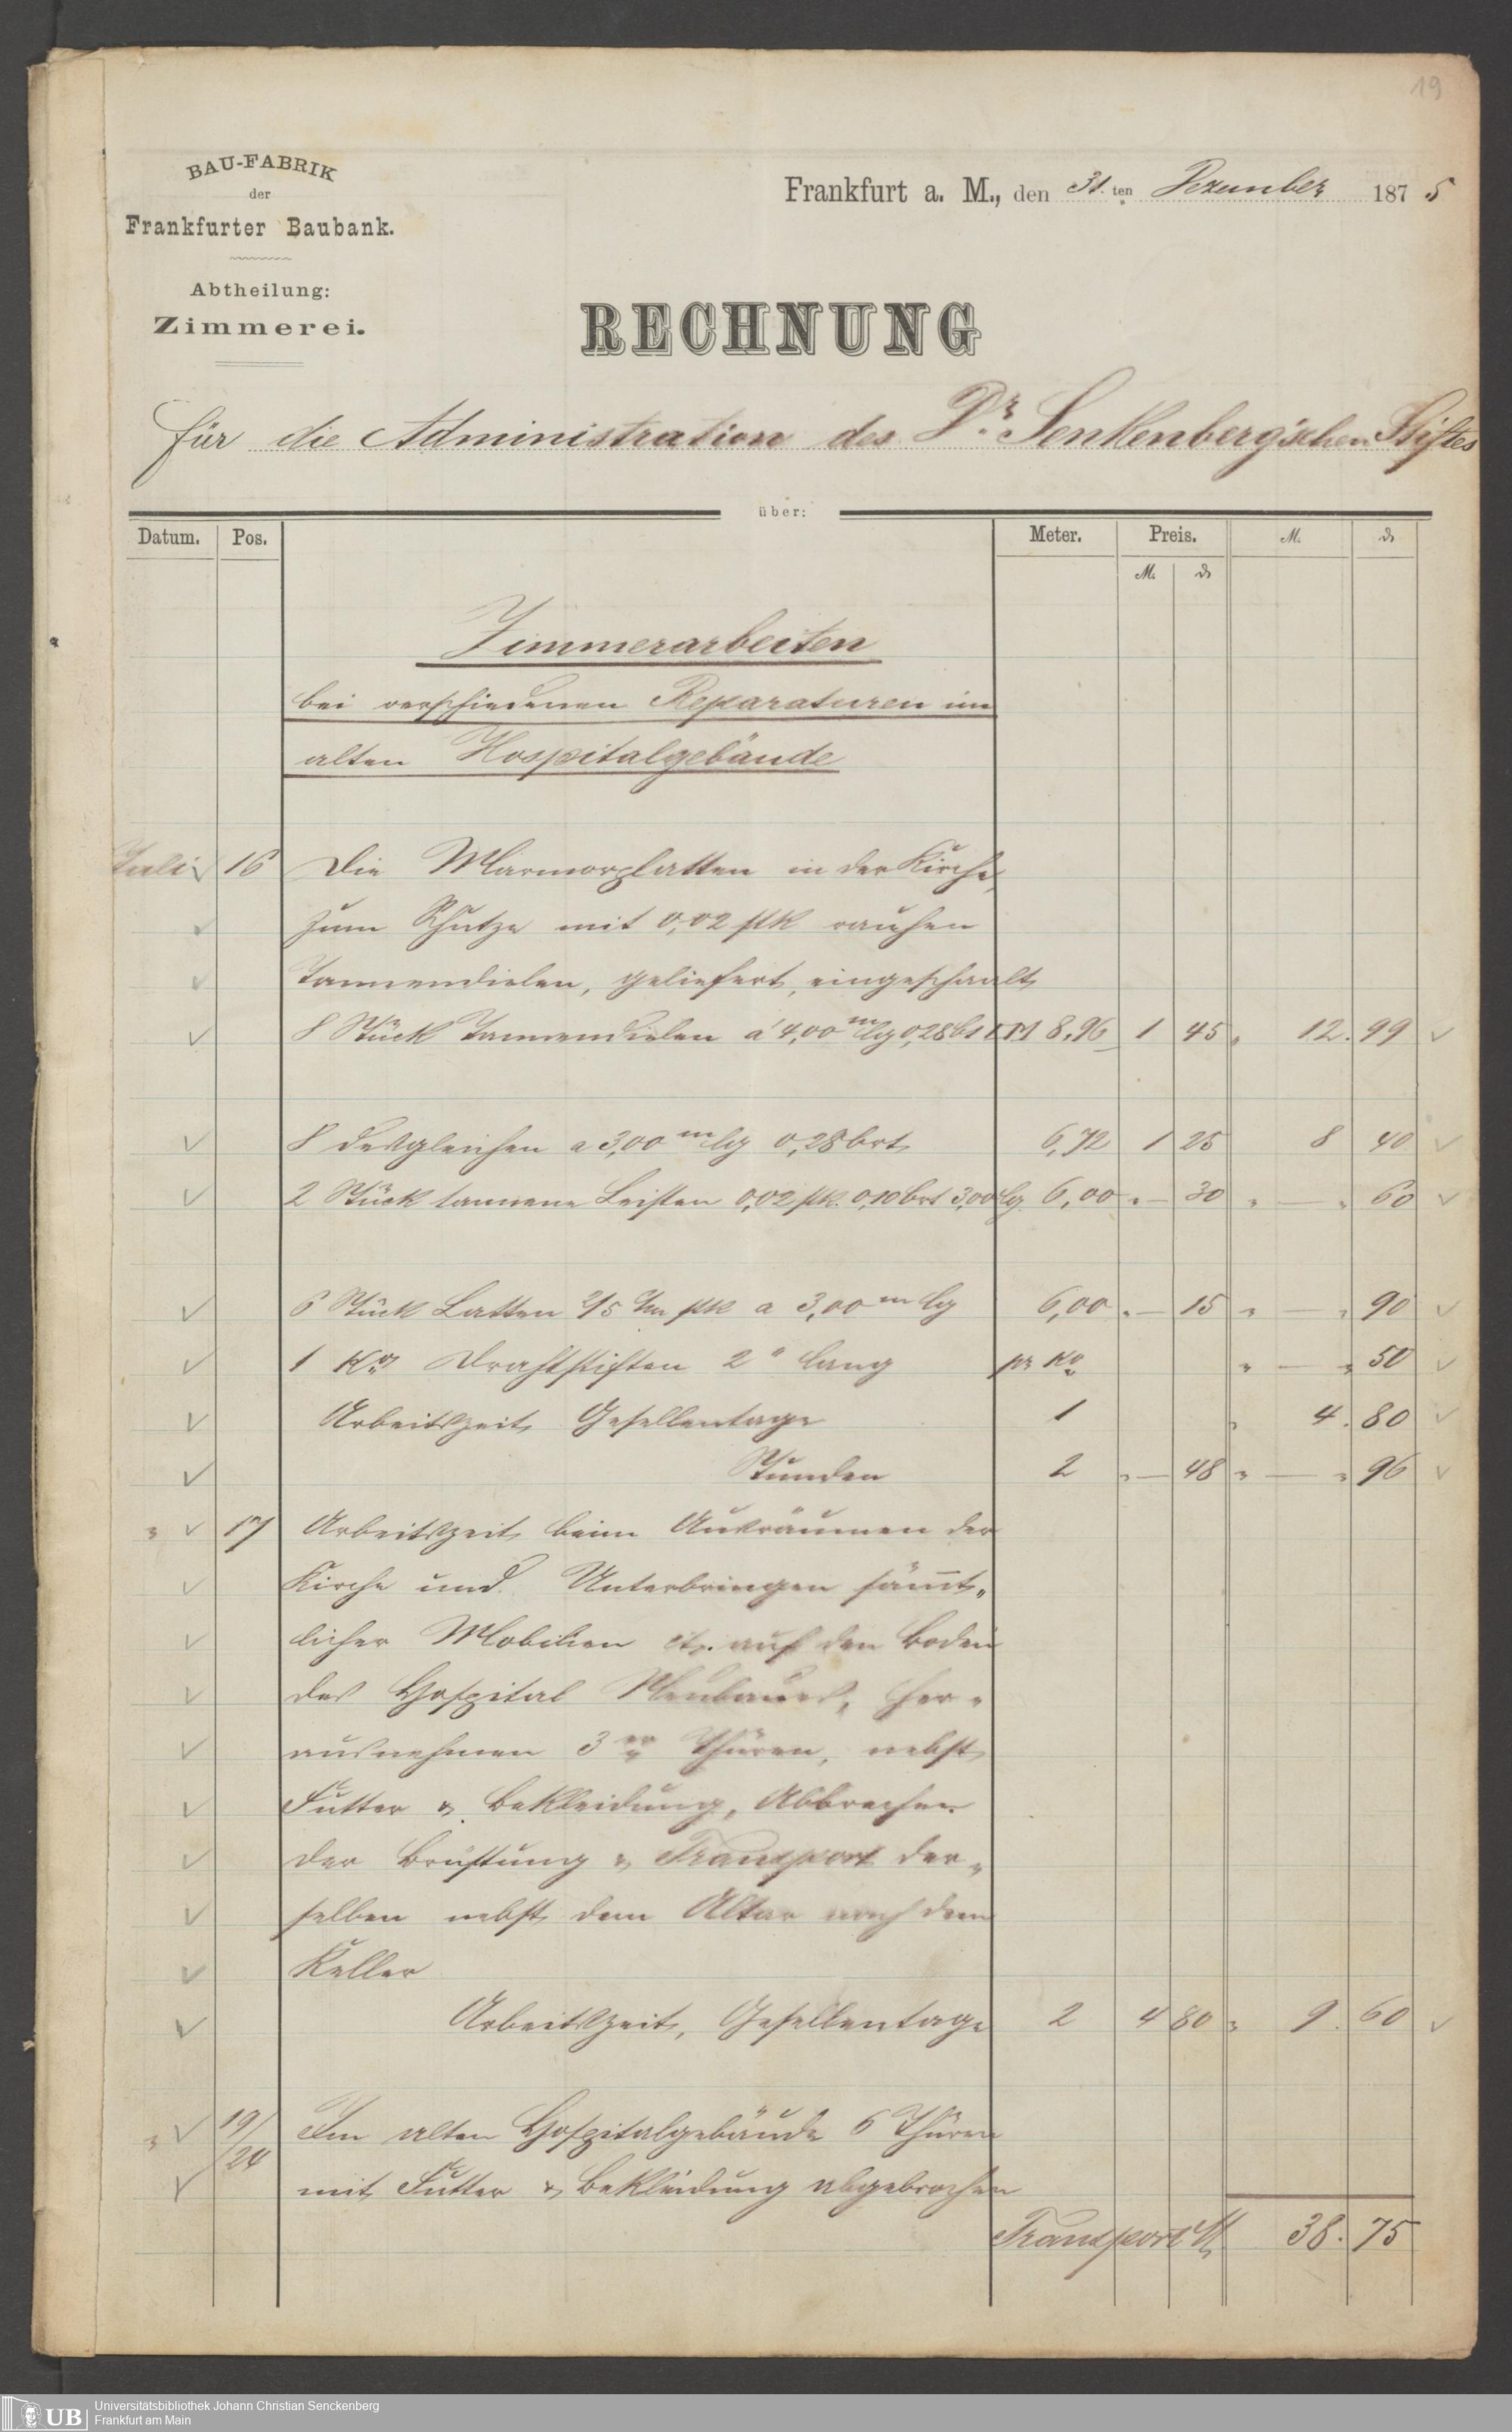 19
BAU-FABRIK
der
Frankfurter Baubank.
Abtheilung:
Zimmerei.
Frankfurt a. M., den 31. ten Dezember 1875
RECHNUNG
für die Administration des Dr. Senkenberg'schen Stiftes
über:
Datum. Pos. Meter. Preis. M. ₰
M. ₰
Zimmerarbeiten
bei verschiedenen Reparaturen im
alten Hospitalgebäude
Juli 16 Die Marmorplatten in der Kirche
zum Schutze mit 0,02 stk rauhen
Tannendielen, geliefert, eingeschaalt
8 Stück Tannendielen a 4,00 m lg 0,28 brt 8,96 1 45 " 12. 99
8 desgleichen a 3,00 m lg 0,28 brt 6,72 1 25 8 40
2 Stück tannene Leisten 0,02 stk. 0,10 brt 3,00 lg 6,00 " — 30 " — " 60
6 Stück Latten 2/5 c/m stk a 3,00 m lg 6,00 " — 15 " — " 90
1 Ko Drahtstiften 2" lang pr Ko " — " 50
Arbeitszeit Gesellentage 1 " 4. 80
Stunden 2 " — 48 " — " 96
" 17 Arbeitszeit beim Ausräumen der
Kirche und Unterbringen sämt„
licher Mobilien etc. auf den Boden
des Hospital Neubaues, her„
ausnehmen 3er Thüren, nebst
Futter & Bekleidung, Abbrechen
der Brüstung & Transport der„
selben nebst dem Altar nach dem
Keller
Arbeitszeit, Gesellentage 2 4 80 " 9. 60
" 19/24 Im alten Hospitalgebäude 6 Thüren
mit Futter & Bekleidung abgebrochen
Transport M 38. 75
UB
Universitätsbibliothek Johann Christian Senckenberg
Frankfurt am Main